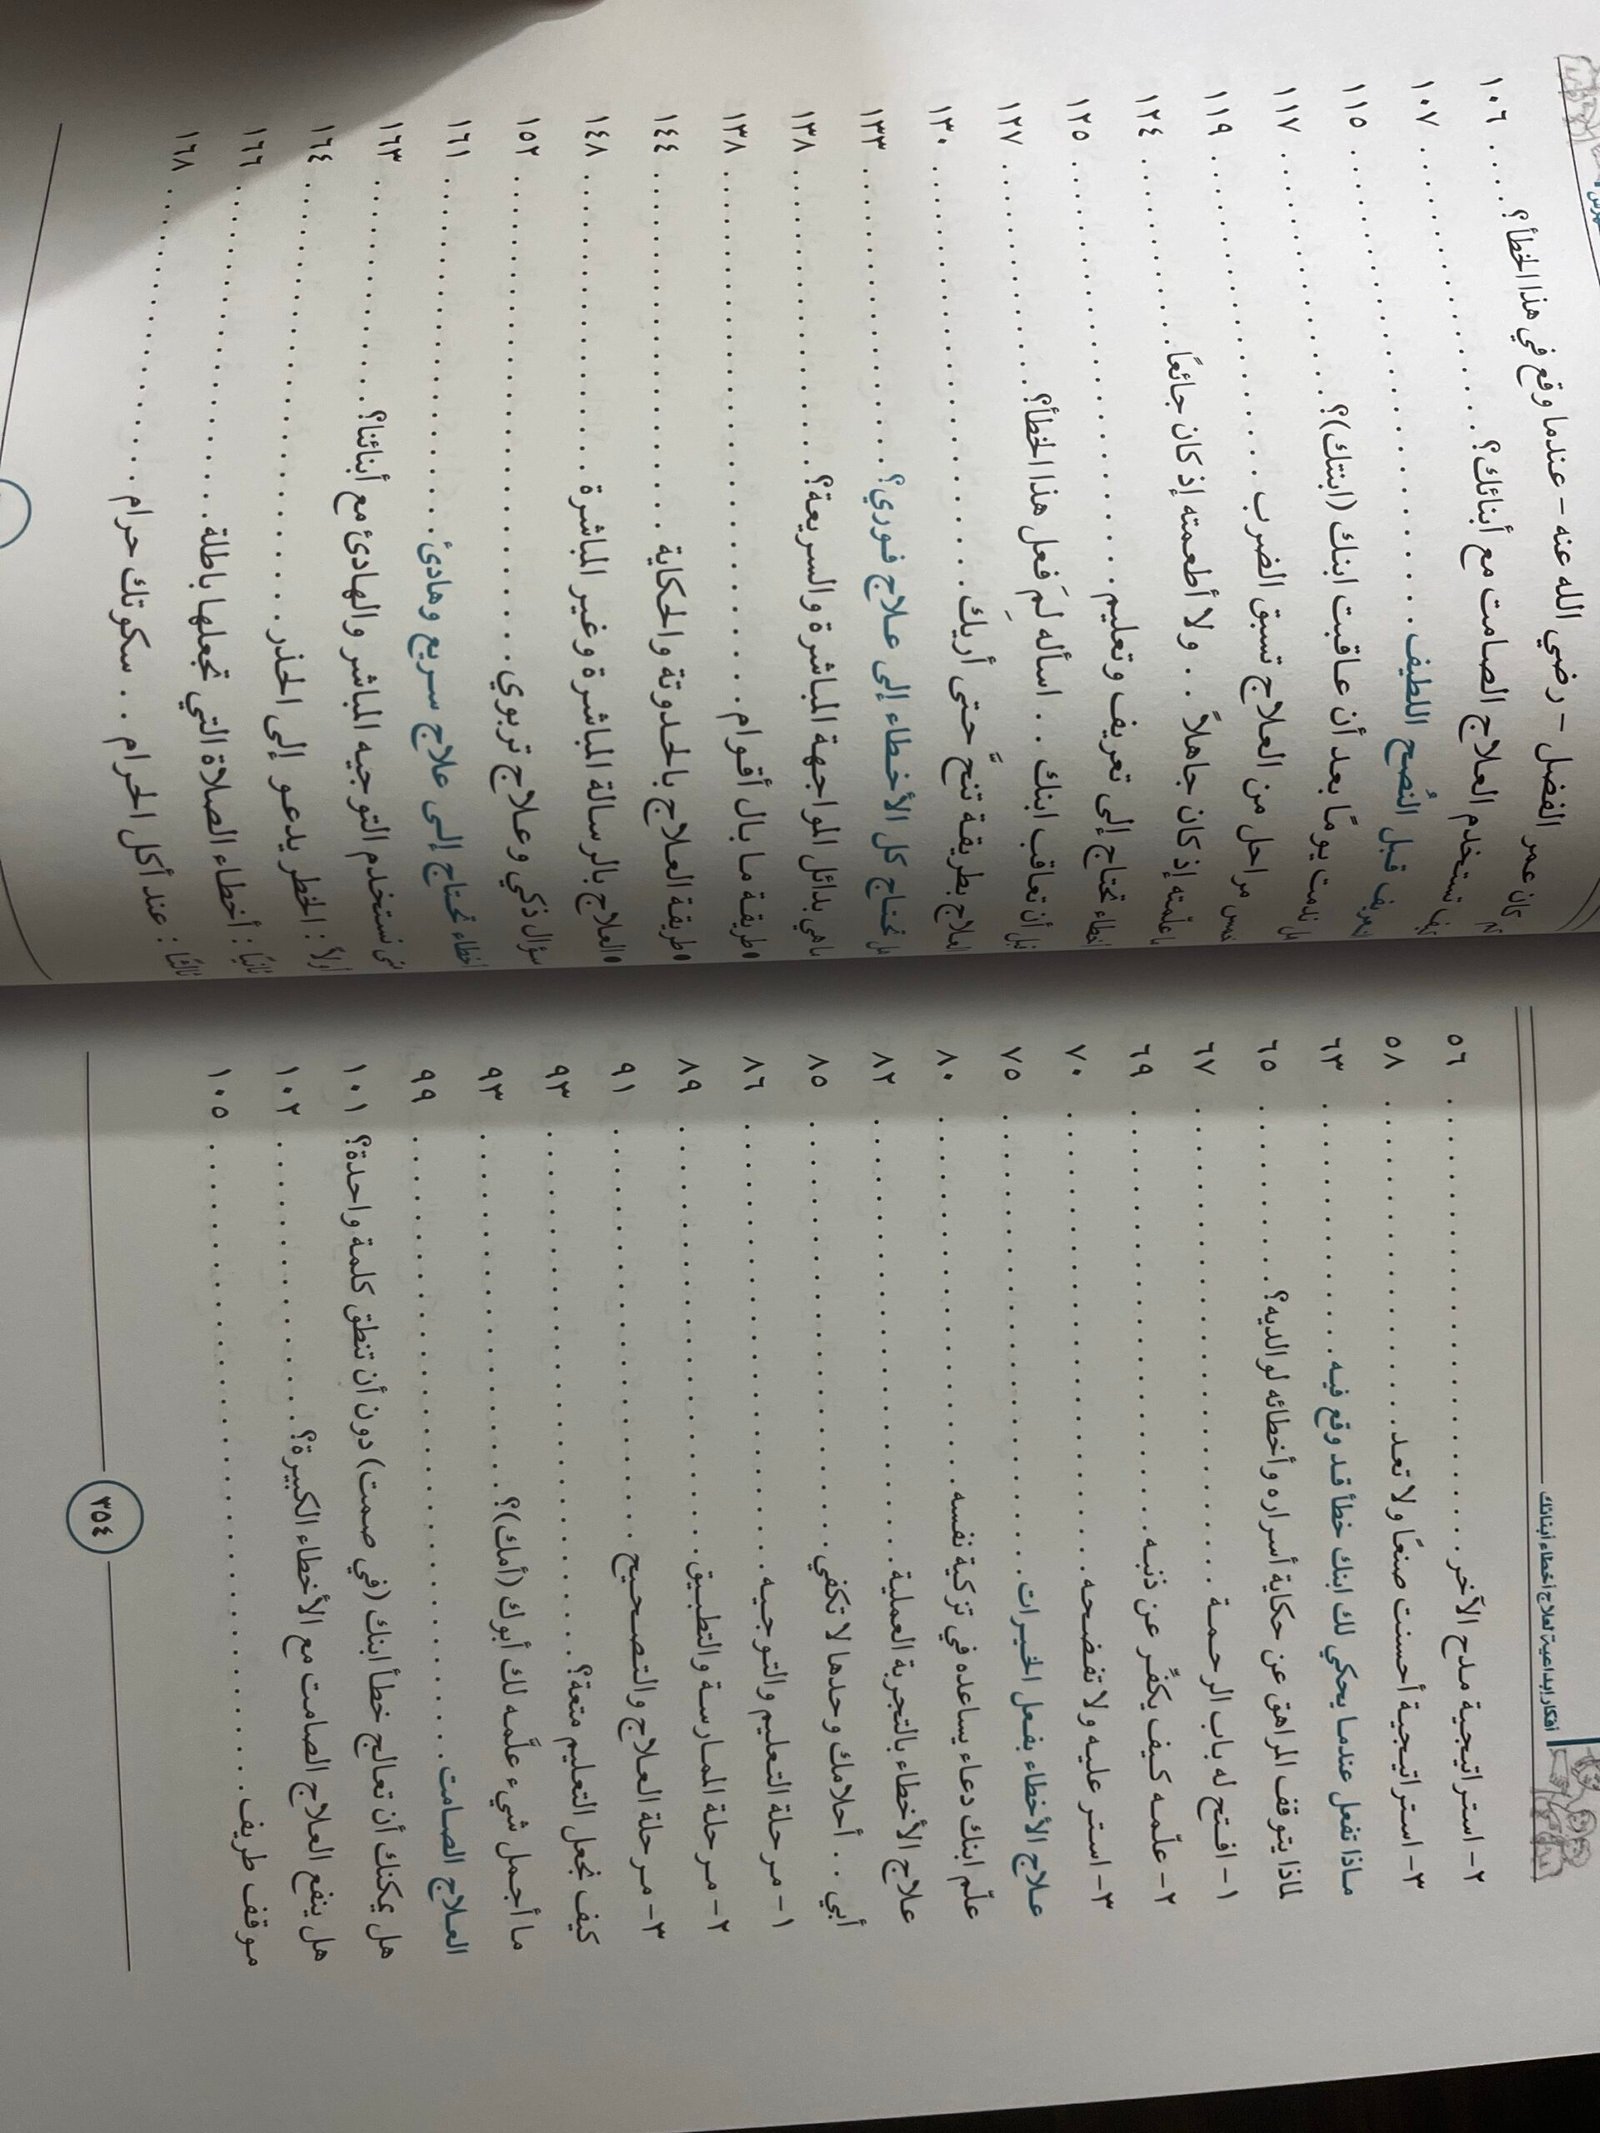 أفكار إبداعية لعلاج أخطاء أبنائك
٢- استراتيجية مدح الآخر ٥٦
٣- استراتيجية أحسنت صنعًا ولا تعد ٥٨
ماذا تفعل عندما يحكي لك ابنك خطأ قد وقع فيه ٦٣
لماذا يتوقف المراهق عن حكاية أسراره وأخطائه لوالديه؟ ٦٥
١- افتح له باب الرحمة ٦٧
٢- علّمه كيف يكفِّر عن ذنبه ٦٩
٣- استر عليه ولا تفضحه ٧٠
علاج الأخطاء بفعل الخيرات ٧٥
علّم ابنك دعاء يساعده في تزكية نفسه ٨٠
علاج الأخطاء بالتجربة العملية ٨٢
أبي . . أحلامك وحدها لا تكفي ٨٥
١- مرحلة التعليم والتوجيه ٨٦
٢- مرحلة الممارسة والتطبيق ٨٩
٣- مرحلة العلاج والتصحيح ٩١
كيف نجعل التعليم متعة؟ ٩٣
ما أجمل شيء علَّمه لك أبوك (أمك)؟ ٩٣
العلاج الصامت ٩٩
هل يمكنك أن تعالج خطأ ابنك (في صمت) دون أن تنطق كلمة واحدة؟ ١٠١
هل ينفع العلاج الصامت مع الأخطاء الكبيرة؟ ١٠٢
موقف طريف ١٠٥
٣٥٤
كان عمر الفضل - رضي الله عنه - عندما وقع في هذا الخطأ؟ ١٠٦
كيف تستخدم العلاج الصامت مع أبنائك؟ ١٠٧
التعريف قبل النُصح اللطيف ١١٥
هل ندمت يومًا بعد أن عاقبت ابنك (ابنتك)؟ ١١٧
خمس مراحل من العلاج تسبق الضرب ١١٩
ما علّمته إذ كان جاهلاً . . ولا أطعمته إذ كان جائعًا ١٢٤
أخطاء تحتاج إلى تعريف وتعليم ١٢٥
قبل أن تعاقب ابنك . . اسأله لِمَ فعل هذا الخطأ؟ ١٢٧
العلاج بطريقة تنحَّ حتى أريك ١٣٠
هل تحتاج كل الأخطاء إلى علاج فوري؟ ١٣٣
ما هي بدائل المواجهة المباشرة والسريعة؟ ١٣٨
• طريقة ما بال أقوام ١٣٨
• طريقة العلاج بالحدوتة والحكاية ١٤٤
• العلاج بالرسالة المباشرة وغير المباشرة ١٤٨
سؤال ذكي وعلاج تربوي ١٥٢
أخطاء تحتاج إلى علاج سريع وهادئ ١٦١
متى نستخدم التوجيه المباشر والهادئ مع أبنائنا؟ ١٦٣
أولاً: الخطر يدعو إلى الحذر ١٦٤
ثانيًا: أخطاء الصلاة التي تجعلها باطلة ١٦٦
ثالثًا: عند أكل الحرام . . سكوتك حرام ١٦٨